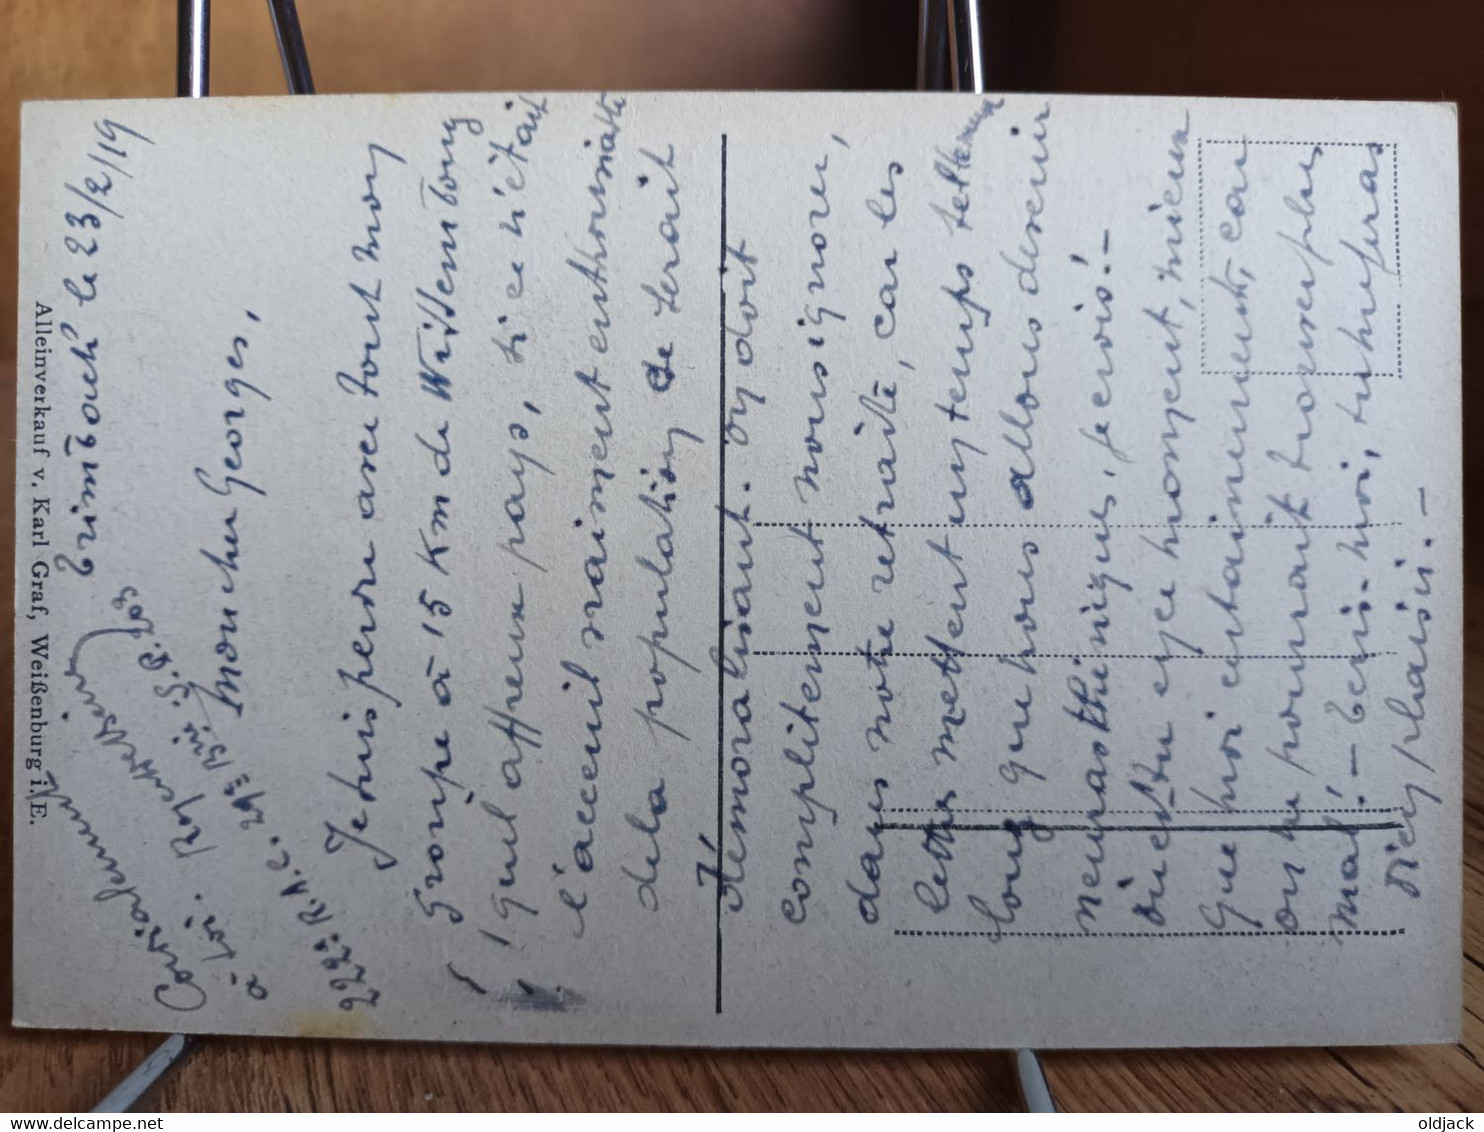 Trimbach le 23/2/19
Mon cher Georges,
Je suis perdu avec tout mon
groupe à 15 Km de Wissembourg
quel affreux pays, si ce n'était
l'accueil vraiment enthousiaste
de la population ce serait
démoralisant. On doit
complètement nous ignorer,
dans notre retraite, car les
lettres mettent un temps tellement
long que nous allons devenir
neurasthéniques, je crois! -
Où es tu en ce moment, mieux
que moi certainement, car
on ne pourrait trouver plus
mal! - Ecris-moi, tu me feras
bien plaisir. -
Cordialement
à toi.
222e R.A.C. 29e Bie S.P. 203
Alleinverkauf v. Karl Graf, Weißenburg i. E.
oldjack